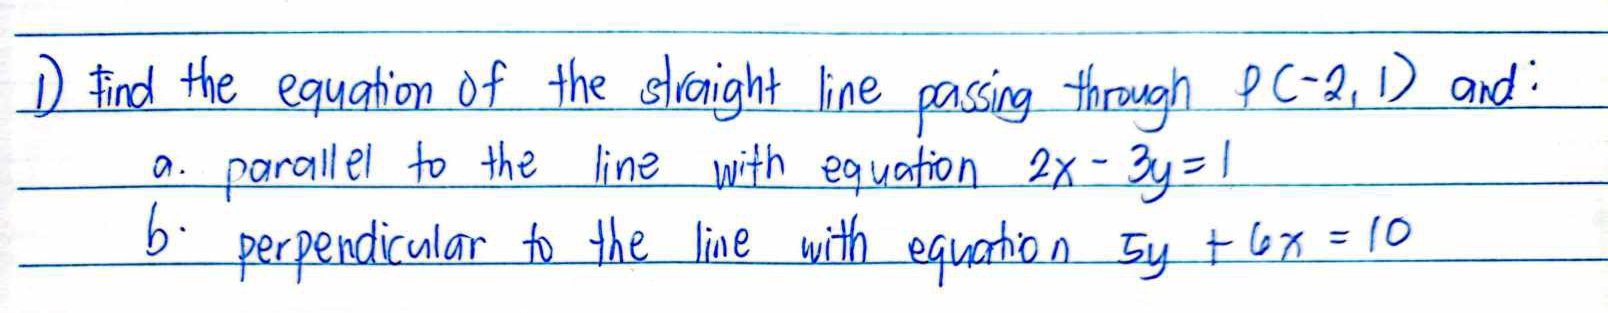 1) Find the equation of the straight line passing through P(-2, 1) and:
a. parallel to the line with equation 2x - 3y = 1
b. perpendicular to the line with equation 5y + 6x = 10